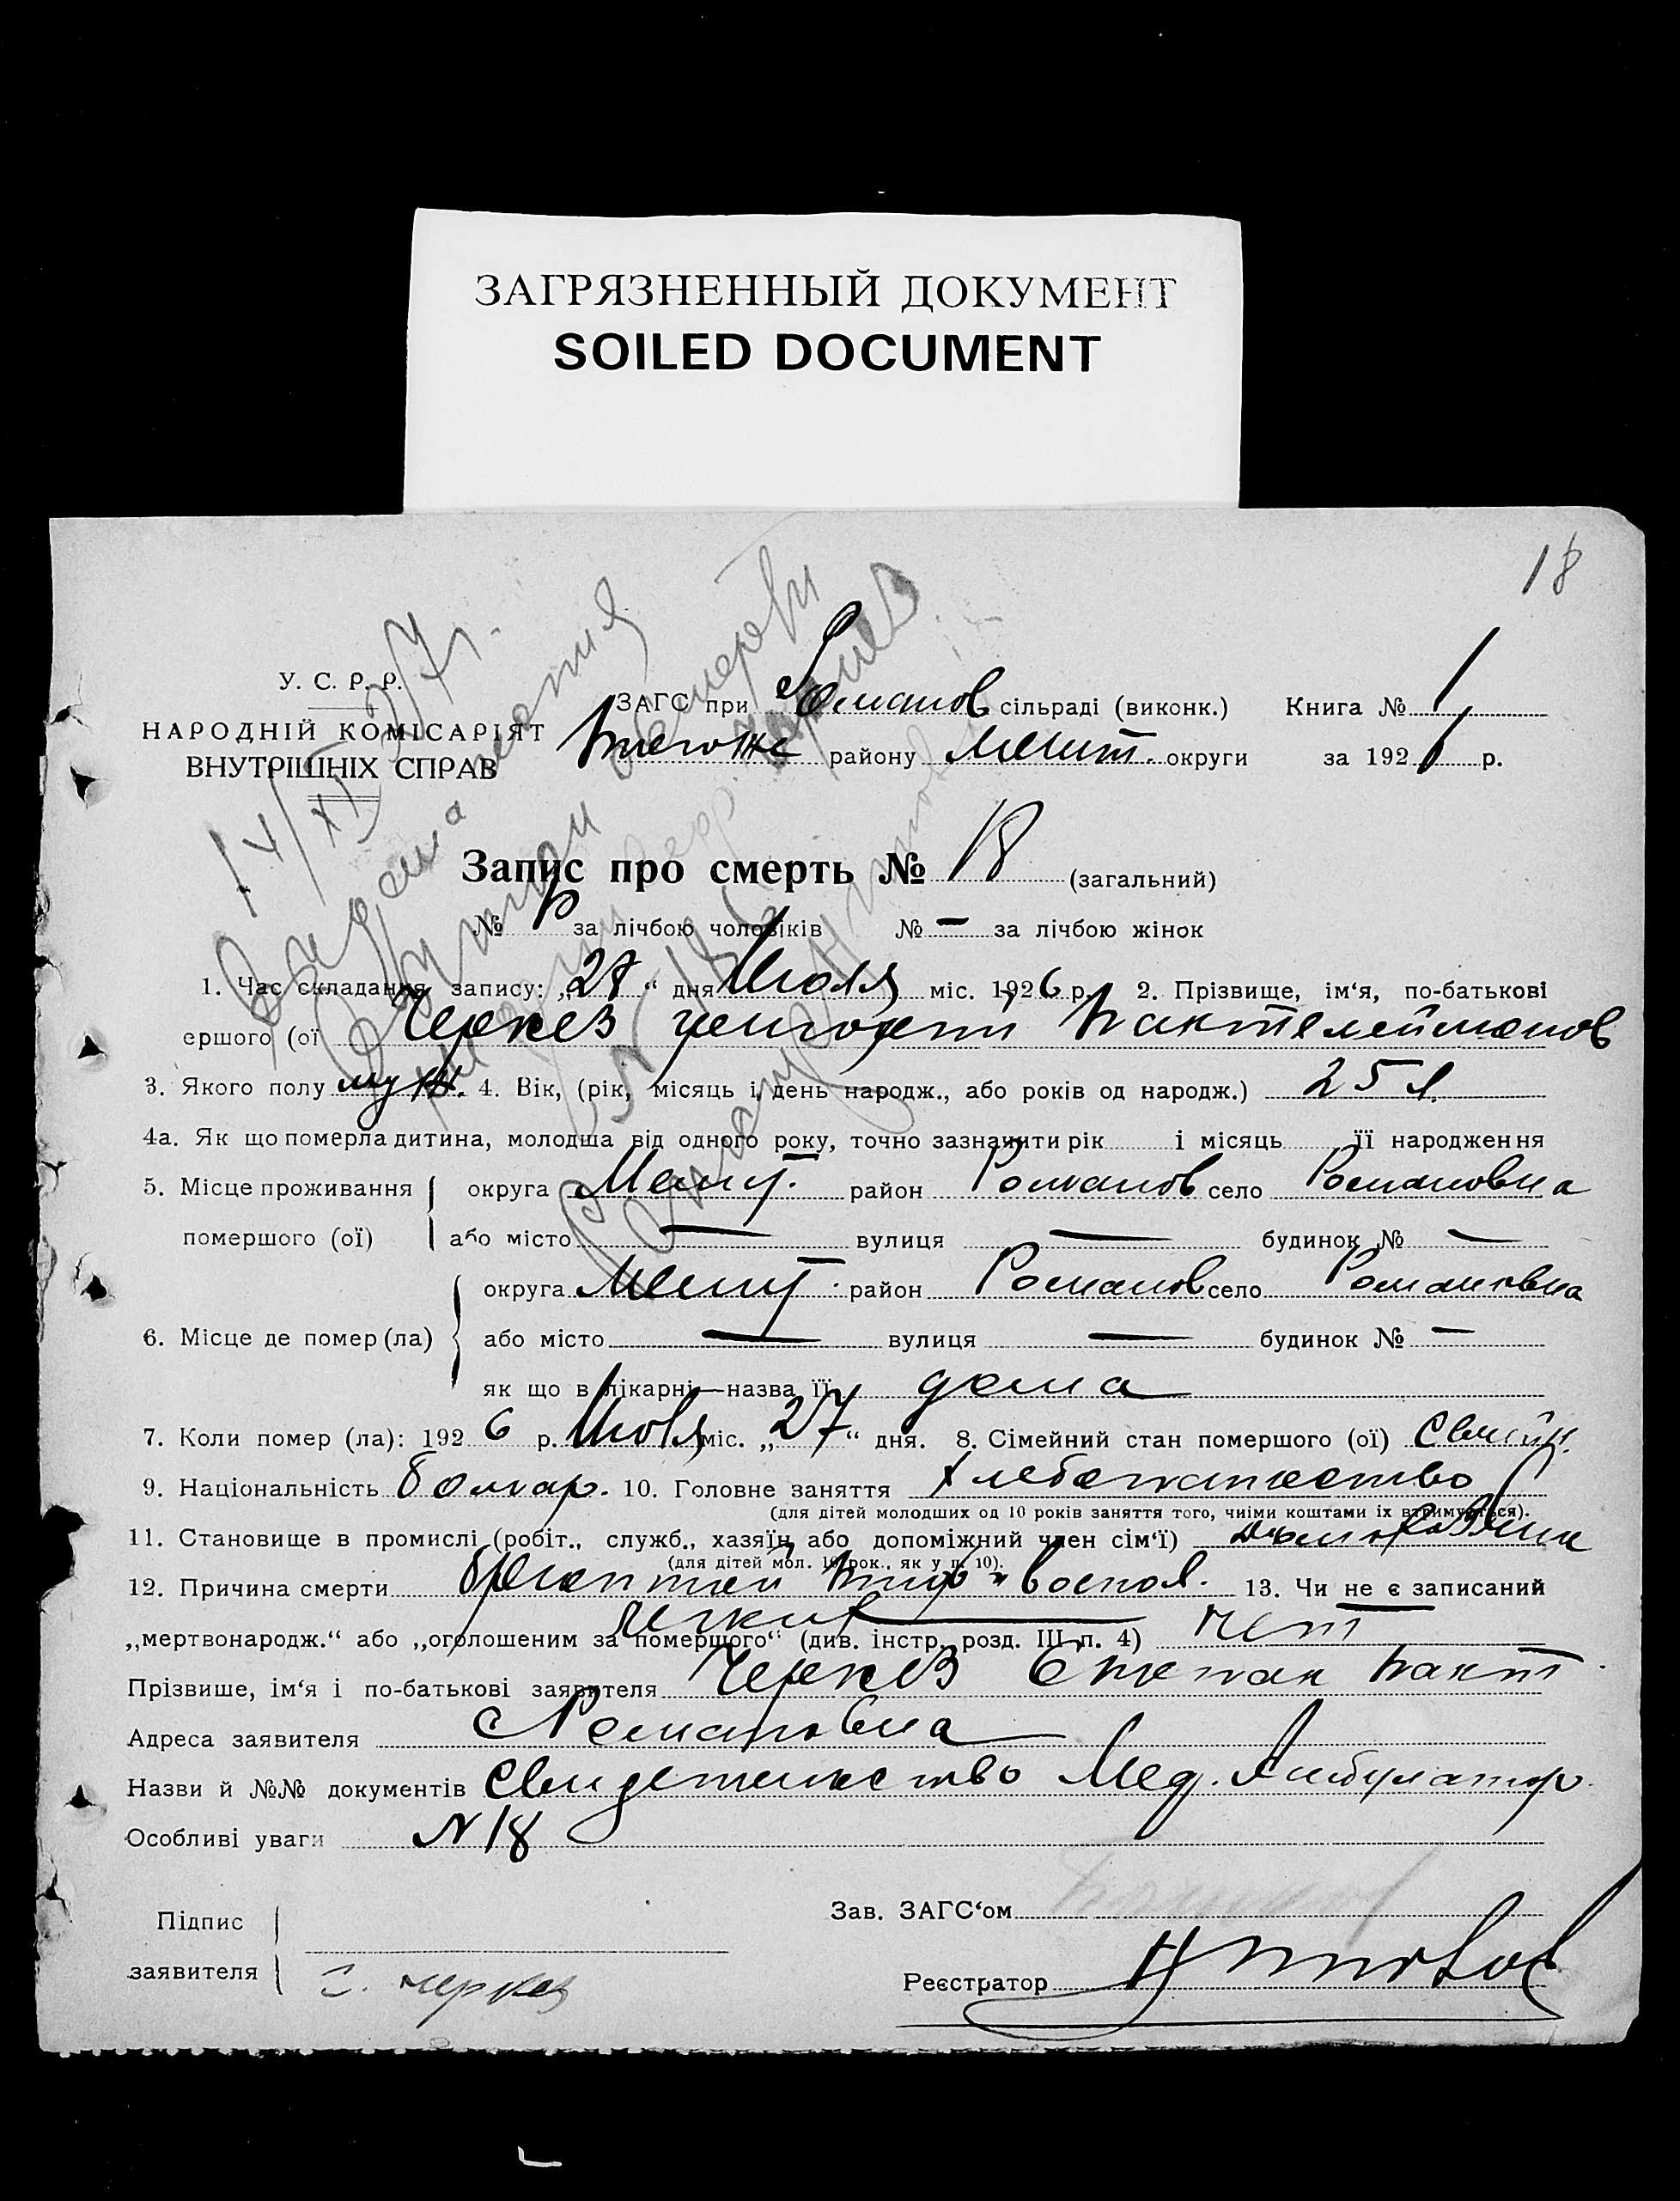 ЗАГРЯЗНЕННЫЙ ДОКУМЕНТ
SOILED DOCUMENT
18
У. С. Р. Р.
НАРОДНІЙ КОМІСАРІЯТ
ВНУТРІШНІХ СПРАВ
ЗАГС при Романов сільраді (виконк.) Книга № 1
району Мелит. округи за 192 6 р.
Запис про смерть № 18 (загальний)
№ за лічбою чоловіків № — за лічбою жінок
1. Час складання запису: „28“ дня Июля міс. 1926 р. 2. Прізвище, ім‘я, по-батькові
ершого (ої Черкез
3. Якого полу муж. 4. Вік, (рік, місяць і день народж., або років од народж.) 25 л.
4а. Як що померла дитина, молодша від одного року, точно зазначити рік і місяць її народження
5. Місце проживання округа Мелит. район Романов село Романовка
помершого (ої) або місто — вулиця — будинок № —
округа Мелит. район Романов село Романовка
6. Місце де помер (ла) або місто — вулиця — будинок № —
як що в лікарні—назва її дома
7. Коли помер (ла): 192 6 р. Июля міс. „27“ дня. 8. Сімейний стан помершого (ої) Семейн.
9. Національність болгар. 10. Головне заняття хлебопашество
(для дітей молодших од 10 років заняття того, чиїми коштами їх втримується).
11. Становище в промислі (робіт., служб., хазяїн або допоміжний член сім‘ї) домохозяин
(для дітей мол. 10 рок., як у п. 10).
12. Причина смерти брюшной тиф и воспал. 13. Чи не є записаний
легких
„мертвонародж.“ або „оголошеним за померщого“ (див. інстр. розд. III п. 4) нет
Прізвище, ім‘я і по-батькові заявителя Черкез Степан Пант.
Адреса заявителя с Романовка
Назви й №№ документів Свидетельство Мед. Амбулатор.
Особливі уваги N 18
Підпис
заявителя С. Черкез
Зав. ЗАГС‘ом
Реєстратор